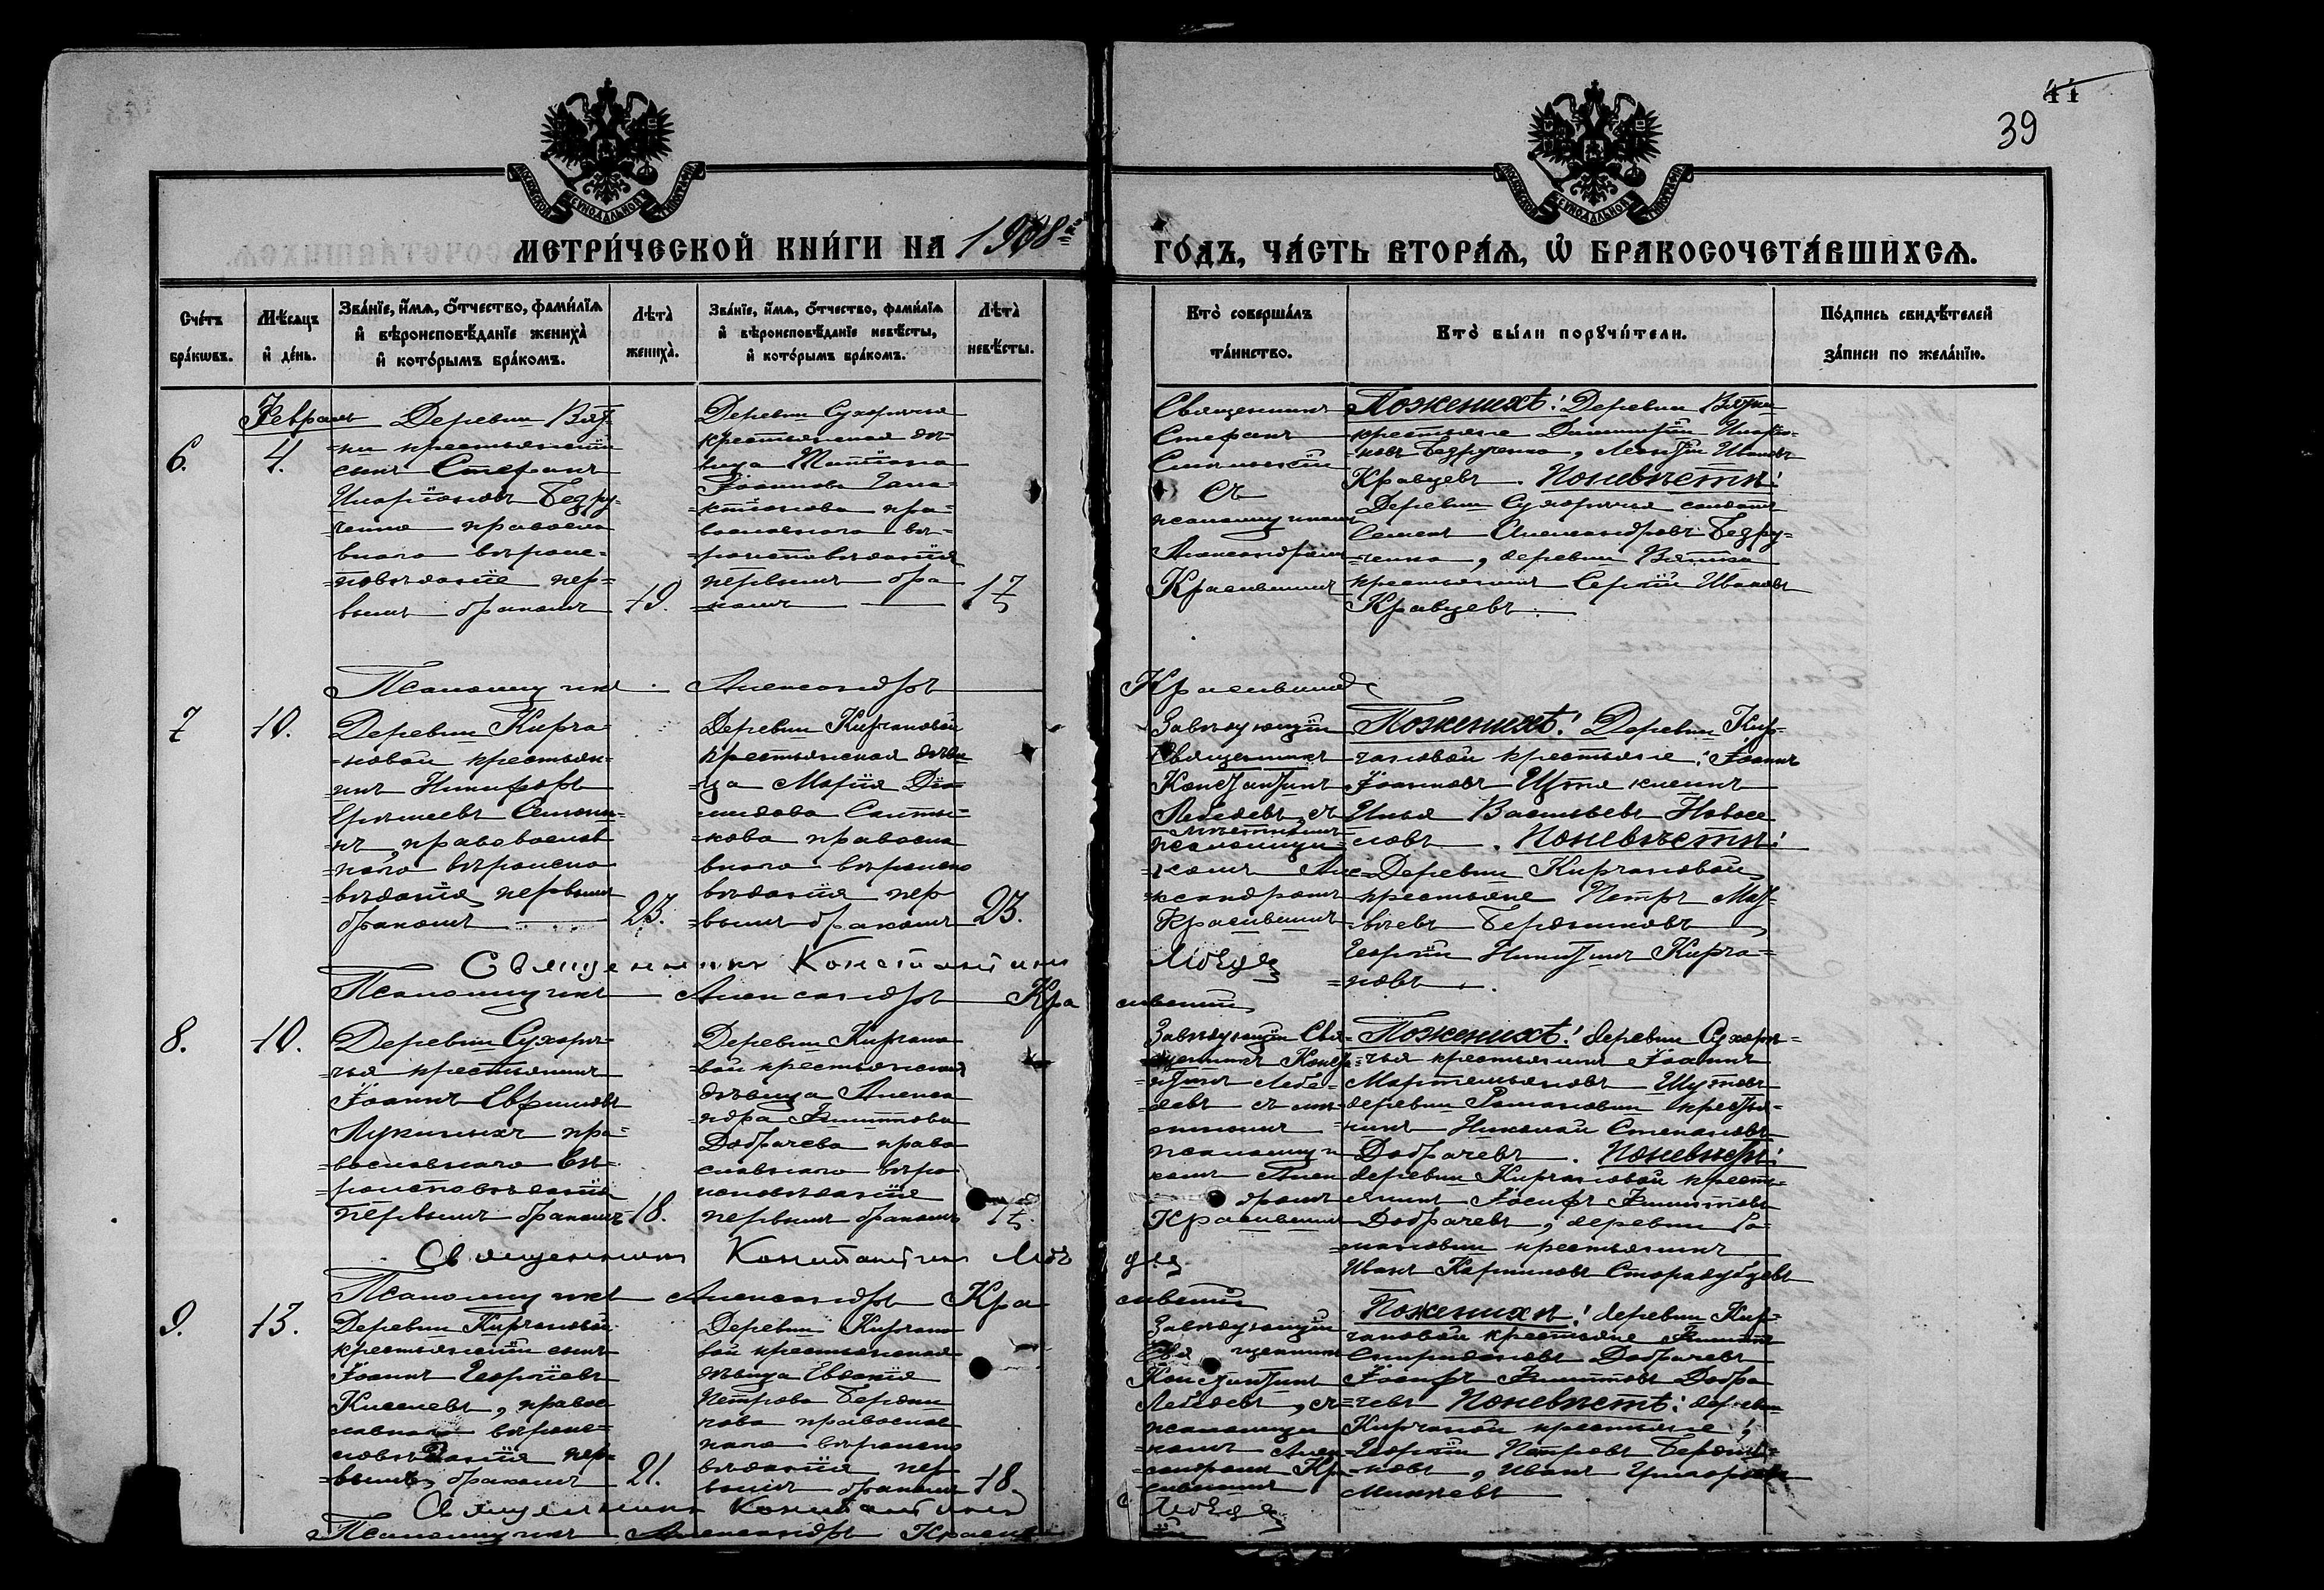 44
39
МЕТРИ́ЧЕСКОЙ КНИ́ГИ НА 1908 ГО́ДЪ, ЧА́СТЬ ВТОРА́Ѧ, Ѽ БРАКОСОЧЕТА́ВШИХСѦ.
Сче́тъ бра́кѡвъ.
Мѣ́сѧцъ и҆ де́нь.
Зва́нїе, и҆́мѧ, о҆́тчество, фами́лїѧ
и҆ вѣроисповѣ́данїе жениха̀
и҆ кото́рымъ бра́комъ.
Лѣта̀ жениха̀.
Зва́нїе, и҆́мѧ, о҆́тчество, фами́лїѧ
и҆ вѣроисповѣ́данїе невѣ́сты,
и҆ кото́рымъ бра́комъ.
Лѣта̀ невѣ́сты.
Кто̀ соверша́лъ та́инство.
Кто̀ бы́ли порꙋчи́тели.
По́дпись свидѣ́телей за́писи по жела́нїю.
6.
Февраль
4.
Деревни Вят-
-ки крестьянскій
сынъ Стефанъ
Иларіоновъ Безру-
ченко православ
внаго вѣроис-
-повѣданія пер-
вымъ бракомъ
19.
Деревни Сухоричья
крестьянская дѣ-
вица Татіана
Іоаннова
пра-
вославнаго вѣ-
-роисповѣданія
первымъ бра
-комъ
17
Священникъ
Стефанъ
съ
псаломщикомъ
Александромъ
Красивымъ
По женихѣ: Деревни Вятки
крестьяне Димитрій Иларіо-
-новъ Безрученко, Леонтій Ивановъ
Кравцевъ. По невѣстѣ:
Деревни Сухоричья солдатъ
Семенъ Александровъ Безру-
-ченко, деревни Вятки
крестьянинъ Сергій Ивановъ
Кравцевъ.
Псаломщикъ Александръ
7
10.
Деревни Кирча-
-новой крестьян-
-инъ Никифоръ
православ
-наго вѣроиспо
-вѣданія первымъ
бракомъ
23.
Деревни Кирчановой
крестьянская дѣви-
-ца Марія Діо-
-мидова
православ
внаго вѣроиспо
вѣданія пер
-вымъ бракомъ
23.
Завѣдующій
Священникъ
Константинъ
Лебедевъ, съ
мѣстнымъ
псаломщи-
-комъ Але-
-ксандромъ
Красивымъ
По женихѣ: Деревни Кир-
-чановой крестьяне: Іоаннъ
Іоанновъ
Илья Васильевъ Новосе
-ловъ. По невѣстѣ:
Деревни Кирчановой
крестьяне Петръ Мат-
-вѣевъ Бердниковъ
Георгій Никитинъ Кирча-
-новъ.
Священникъ Константинъ Лебедев
Псаломщикъ Александръ Красивый
8.
10.
Деревни Сухори-
-чья крестьянинъ
Іоаннъ Ефимовъ
Лукиныхъ пра-
-вославнаго вѣ-
-роисповѣданія
первымъ бракомъ
18.
Деревни Кирчано
-вой крестьянская
дѣвица Алекса
-ндра Филиппова
Добрачева право
славнаго вѣрои
повѣданія
первымъ бракомъ
17.
Завѣдующій Свя-
-щенникъ Конст-
-нтинъ Лебе-
девъ съ мѣ-
стнымъ
псаломщи
комъ Алек
дромъ
Красивымъ
По женихѣ: деревни Сухори-
-чья крестьянинъ Іоаннъ
Мартемьяновъ Шутовъ
деревни крестья-
-нинъ Николай Степановъ
Добрачевъ. По невѣстѣ:
деревни Кирчановой кресть-
янинъ Іосифъ Филипповъ
Добрачевъ, деревни
крестьянинъ
Иванъ Стародубцевъ
Священникъ Константин Лебедев
Псаломщикъ Александръ Красивый
9.
13.
Деревни Кирчановой
крестьянскій сынъ
Іоаннъ Георгіевъ
Киселевъ, правос
лавнаго вѣроис-
повѣданія пер-
-вымъ бракомъ
21.
Деревни Кирчано
вой крестьянская
дѣвица Евдокія
Петрова Бердни
кова православ
наго вѣроиспо
вѣданія пер
вымъ бракомъ
18.
Завѣдующій
Священникъ
Константинъ
Лебедевъ, съ
псаломщи
-комъ Алек
-сандромъ Кра
-сивымъ
По женихѣ: деревни Кир-
чановой крестьяне Филиппъ
Спиридоновъ Добрачевъ
Іосифъ Филипповъ Добра
-чевъ По невѣстѣ: деревни
Кирчаной крестьяне:
Георгій Петровъ Бердни-
-ковъ, Иванъ
Священникъ Константин Лебедев
Псаломщикъ Александръ